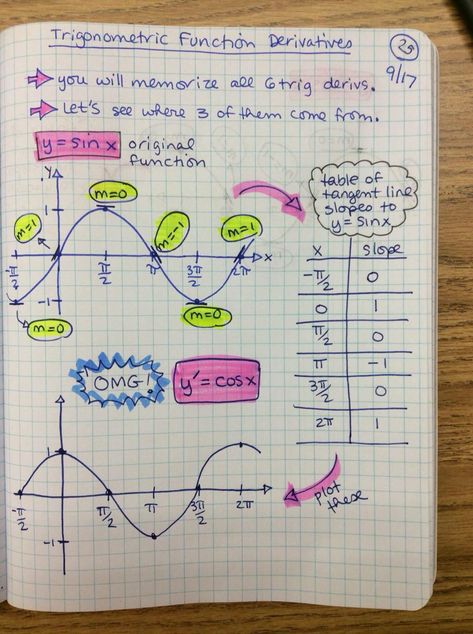 Trigonometric Function Derivatives
25
9/17
you will memorize all 6 trig derivs.
Let's see where 3 of them come from.
y = sin x original
function
y
1
-1
-π/2
π/2
π
3π/2
2π
x
m=1
m=0
m=-1
m=1
m=0
m=0
table of
tangent line
slopes to
y = sinx
x slope
-π/2 0
0 1
π/2 0
π -1
3π/2 0
2π 1
OMG!
y' = cosx
1
-1
-π/2
π/2
π
3π/2
2π
plot
these